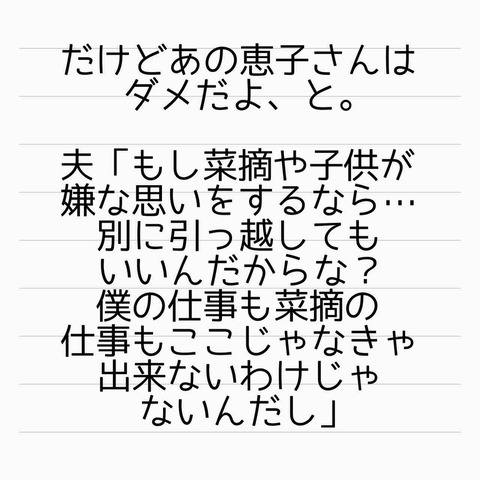 だけどあの恵子さんは
ダメだよ、と。
夫「もし菜摘や子供が
嫌な思いをするなら…
別に引っ越しても
いいんだからな？
僕の仕事も菜摘の
仕事もここじゃなきゃ
出来ないわけじゃ
ないんだし」